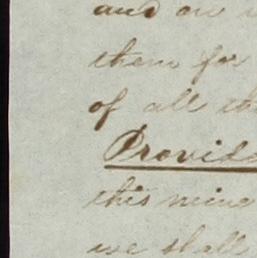 and on
them for
of all th
Provide
this mine
we shall